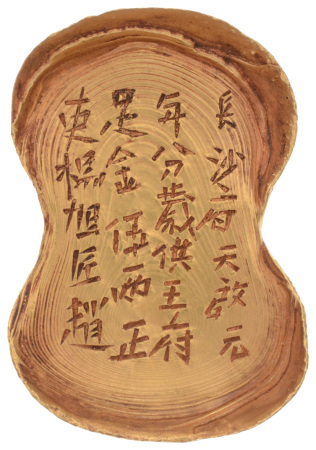 長沙府天啟元
年分歲供王府
足金伍兩正
吏楊旭匠趙